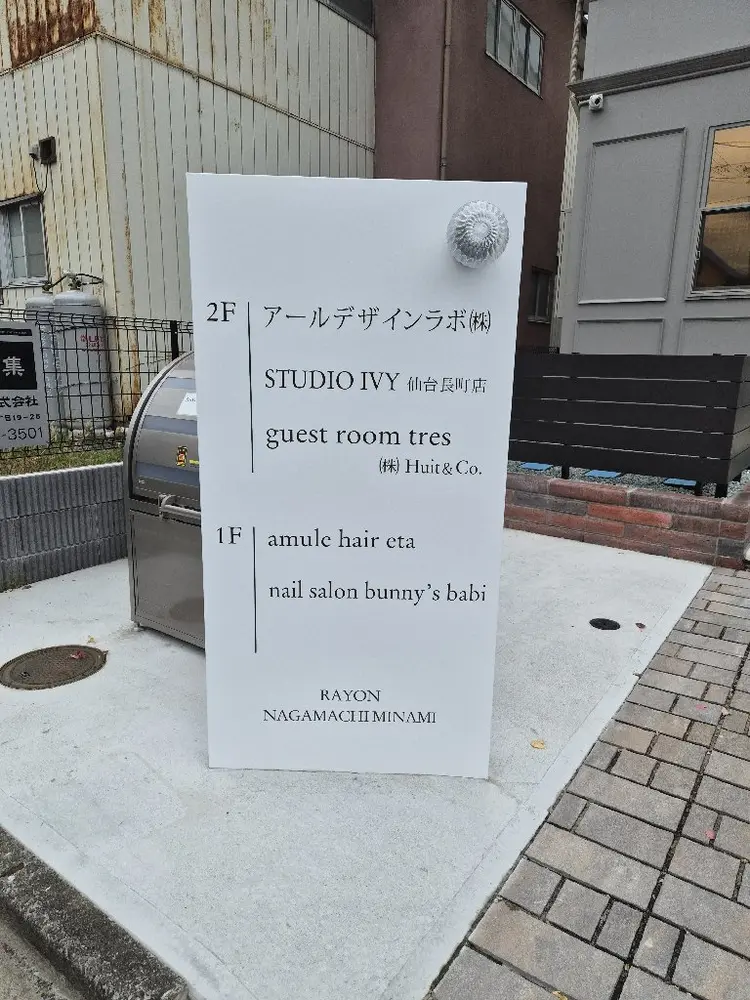 2F
アールデザインラボ㈱
STUDIO IVY 仙台長町店
guest room tres
㈱ Huit&Co.
1F
amule hair eta
nail salon bunny's babi
RAYON
NAGAMACHI MINAMI
集
式会社
-3501